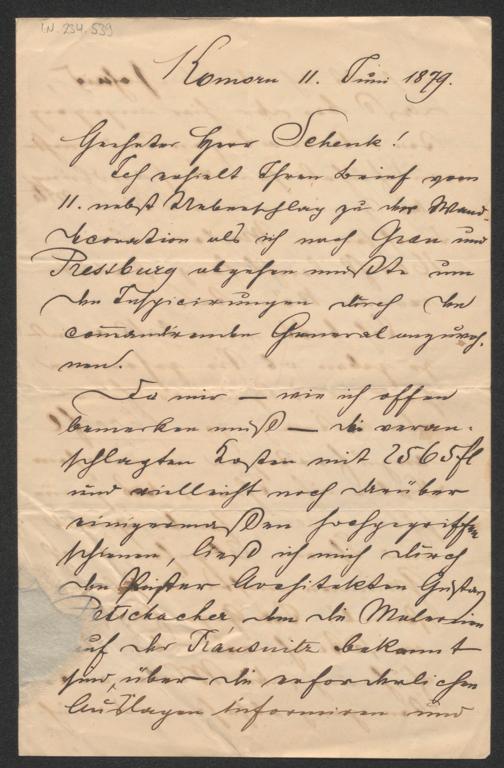 IN. 234.539
Komorn 11. Juni 1879.
Geehrter Herr Schenk!
Ich erhielt Ihren Brief vom
11. nebst Ueberschlag zu der Wand-
decoration als ich nach Gran und
Pressburg abgehen mußte um
den Inspicirungen durch den
com̅andirenden General anzuwoh-
nen.
Da mir — wie ich offen
bemerken muß — die veran-
schlagten Kosten mit 2565 fl
und vielleicht noch darüber
einigermaßen hochgegriffen
schienen, ließ ich mich durch
den Architekten Gustav
Petschacher dem die Malereien
auf der Trausnitz bekannt
sind, über die erforderlichen
Auslagen informiren und